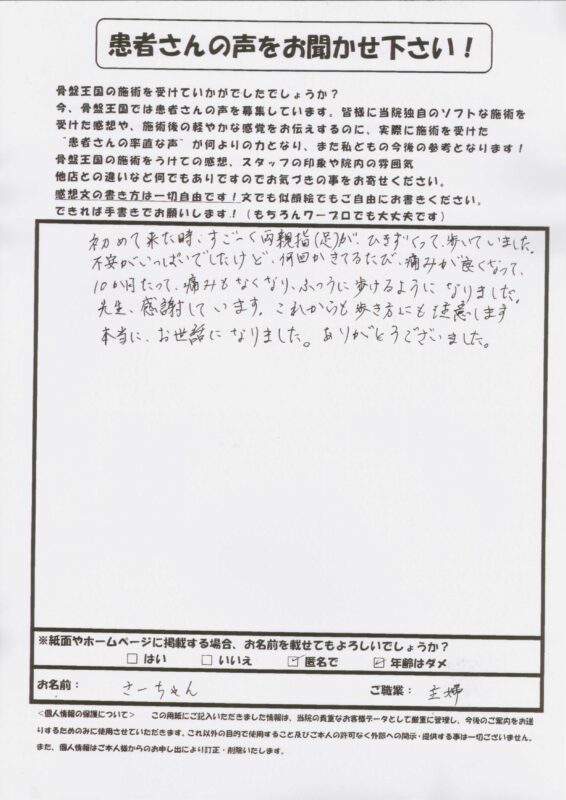 患者さんの声をお聞かせ下さい！
骨盤王国の施術を受けていかがでしたでしょうか？
今、骨盤王国では患者さんの声を募集しています。皆様に当院独自のソフトな施術を
受けた感想や、施術後の軽やかな感覚をお伝えするのに、実際に施術を受けた
"患者さんの率直な声"が何よりの力となり、また私どもの今後の参考となります！
骨盤王国の施術をうけての感想、スタッフの印象や院内の雰囲気
他店との違いなど何でもありですのでお気づきの事をお寄せください。
感想文の書き方は一切自由です！文でも似顔絵でもご自由にお書きください。
できれば手書きでお願いします！（もちろんワープロでも大丈夫です）
初めて来た時、すごーく両親指(足)が、ひきずくって、歩いていました。
不安がいっぱいでしたけど、何回かきてるたび、痛みが良くなって、
10か月たって、痛みもなくなり、ふつうに歩けるようになりました。
先生、感謝しています。これからも歩き方にも注意します
本当に、お世話になりました。ありがとうございました。
※紙面やホームページに掲載する場合、お名前を載せてもよろしいでしょうか？
□ はい □ いいえ ☑ 匿名で ☑ 年齢はダメ
お名前： さーちゃん ご職業： 主婦
＜個人情報の保護について＞ この用紙にご記入いただきました情報は、当院の貴重なお客様データとして厳重に管理し、今後のご案内をお送
りするためのみに使用させていただきます。これ以外の目的で使用すること及びご本人の許可なく外部への開示・提供する事は一切ございません。
また、個人情報はご本人様からのお申し出により訂正・削除いたします。